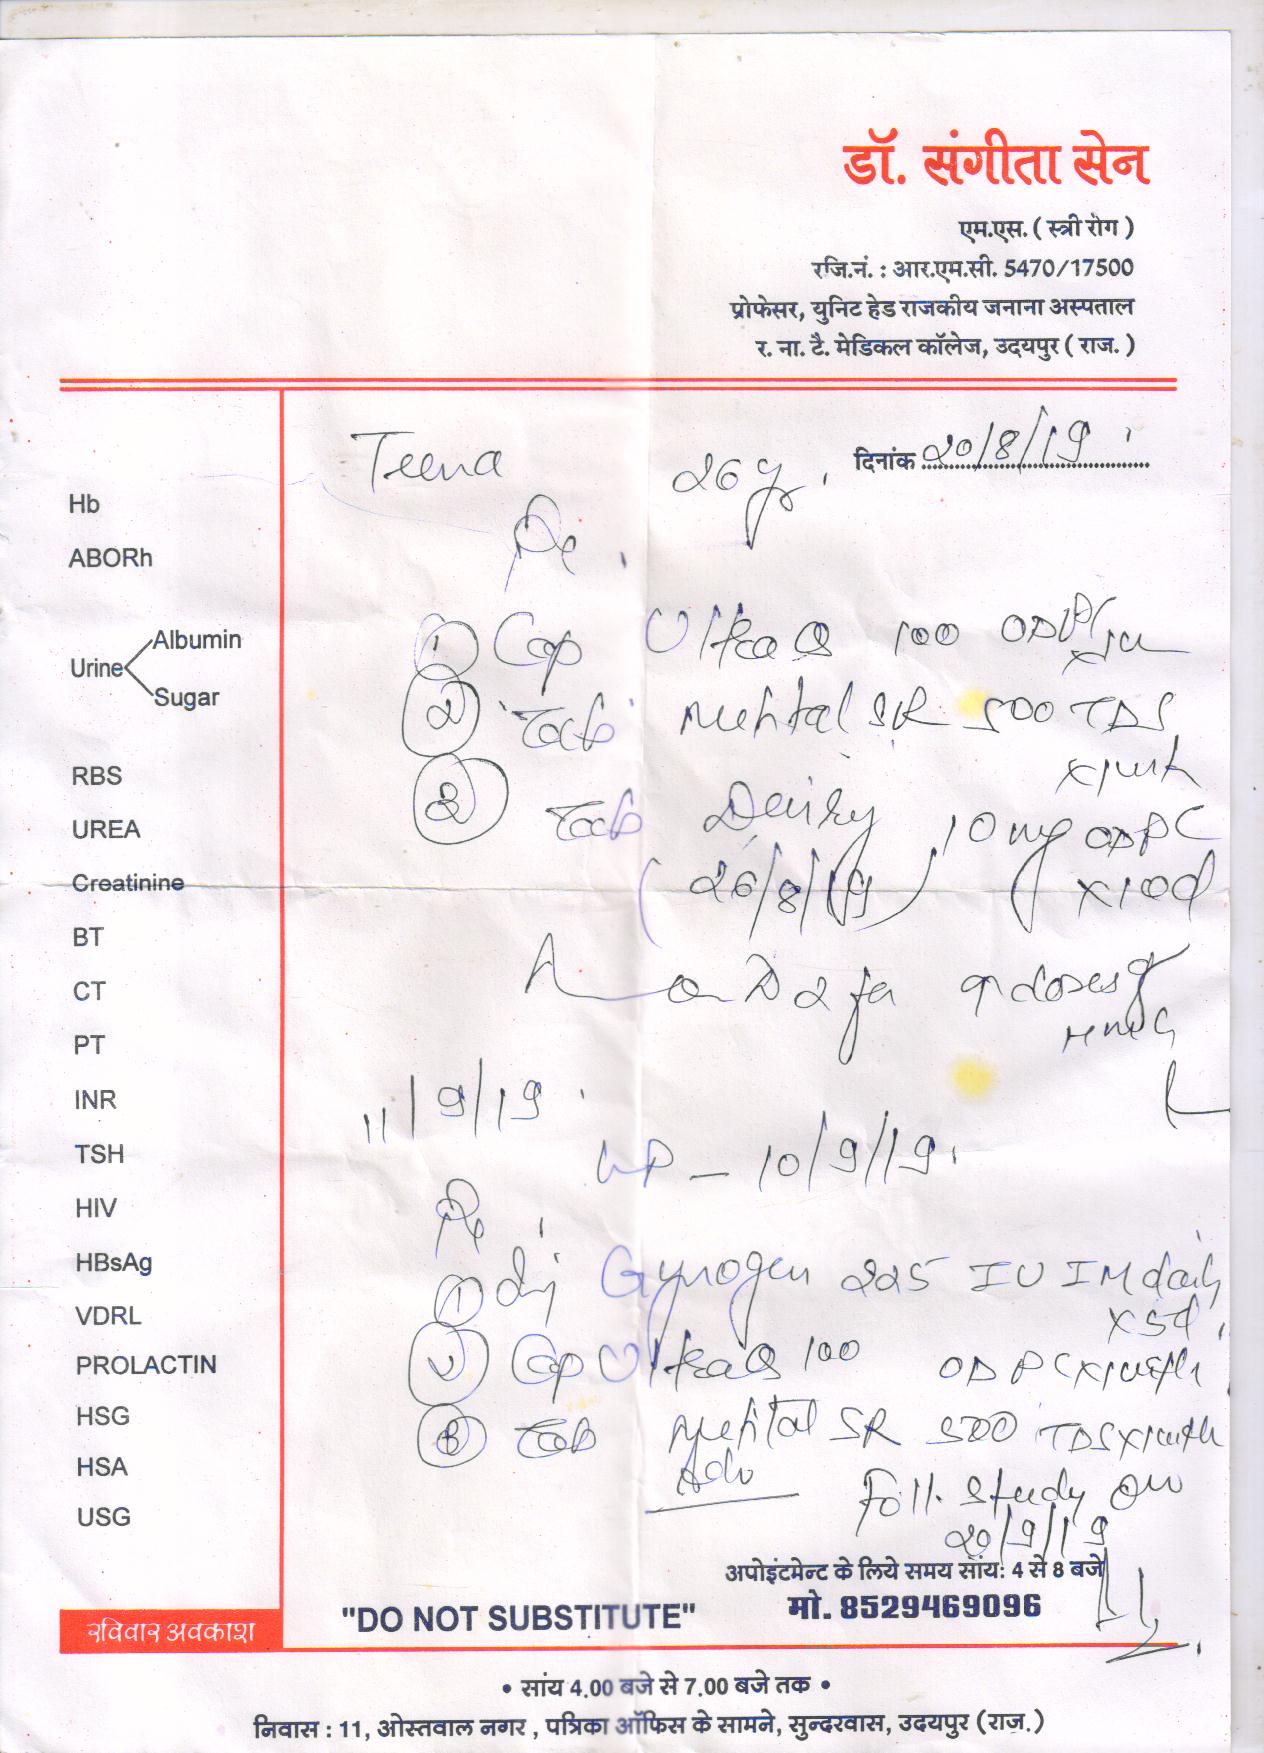 डॉ. संगीता सेन
एम.एस. ( स्त्री रोग )
रजि.नं. : आर.एम.सी. 5470/17500
प्रोफेसर, युनिट हेड राजकीय जनाना अस्पताल
र. ना. टै. मेडिकल कॉलेज, उदयपुर ( राज. )
Teena 26 yr. दिनांक 20/8/19
Hb
ABORh
Urine
Albumin
Sugar
RBS
UREA
Creatinine
BT
CT
PT
INR
TSH
HIV
HBsAg
VDRL
PROLACTIN
HSG
HSA
USG
रविवार अवकाश
① Cap Ultra Q 100 OD PC
② Tab SR 500 TDS
③ Tab 10 mg OD PC
(26/8/19) x 10d
D2 for doses of
HMG
11/9/19
LMP – 10/9/19
① Inj Gynogen 225 IU IM daily
x 5d
② Cap Ultra Q 100 OD PC
③ Tab SR 500 TDS
Adv
Foll. study on
20/9/19
अपोइंटमेन्ट के लिये समय सांय: 4 से 8 बजे
मो. 8529469096
"DO NOT SUBSTITUTE"
• सांय 4.00 बजे से 7.00 बजे तक •
निवास : 11, ओस्तवाल नगर , पत्रिका ऑफिस के सामने, सुन्दरवास, उदयपुर (राज.)